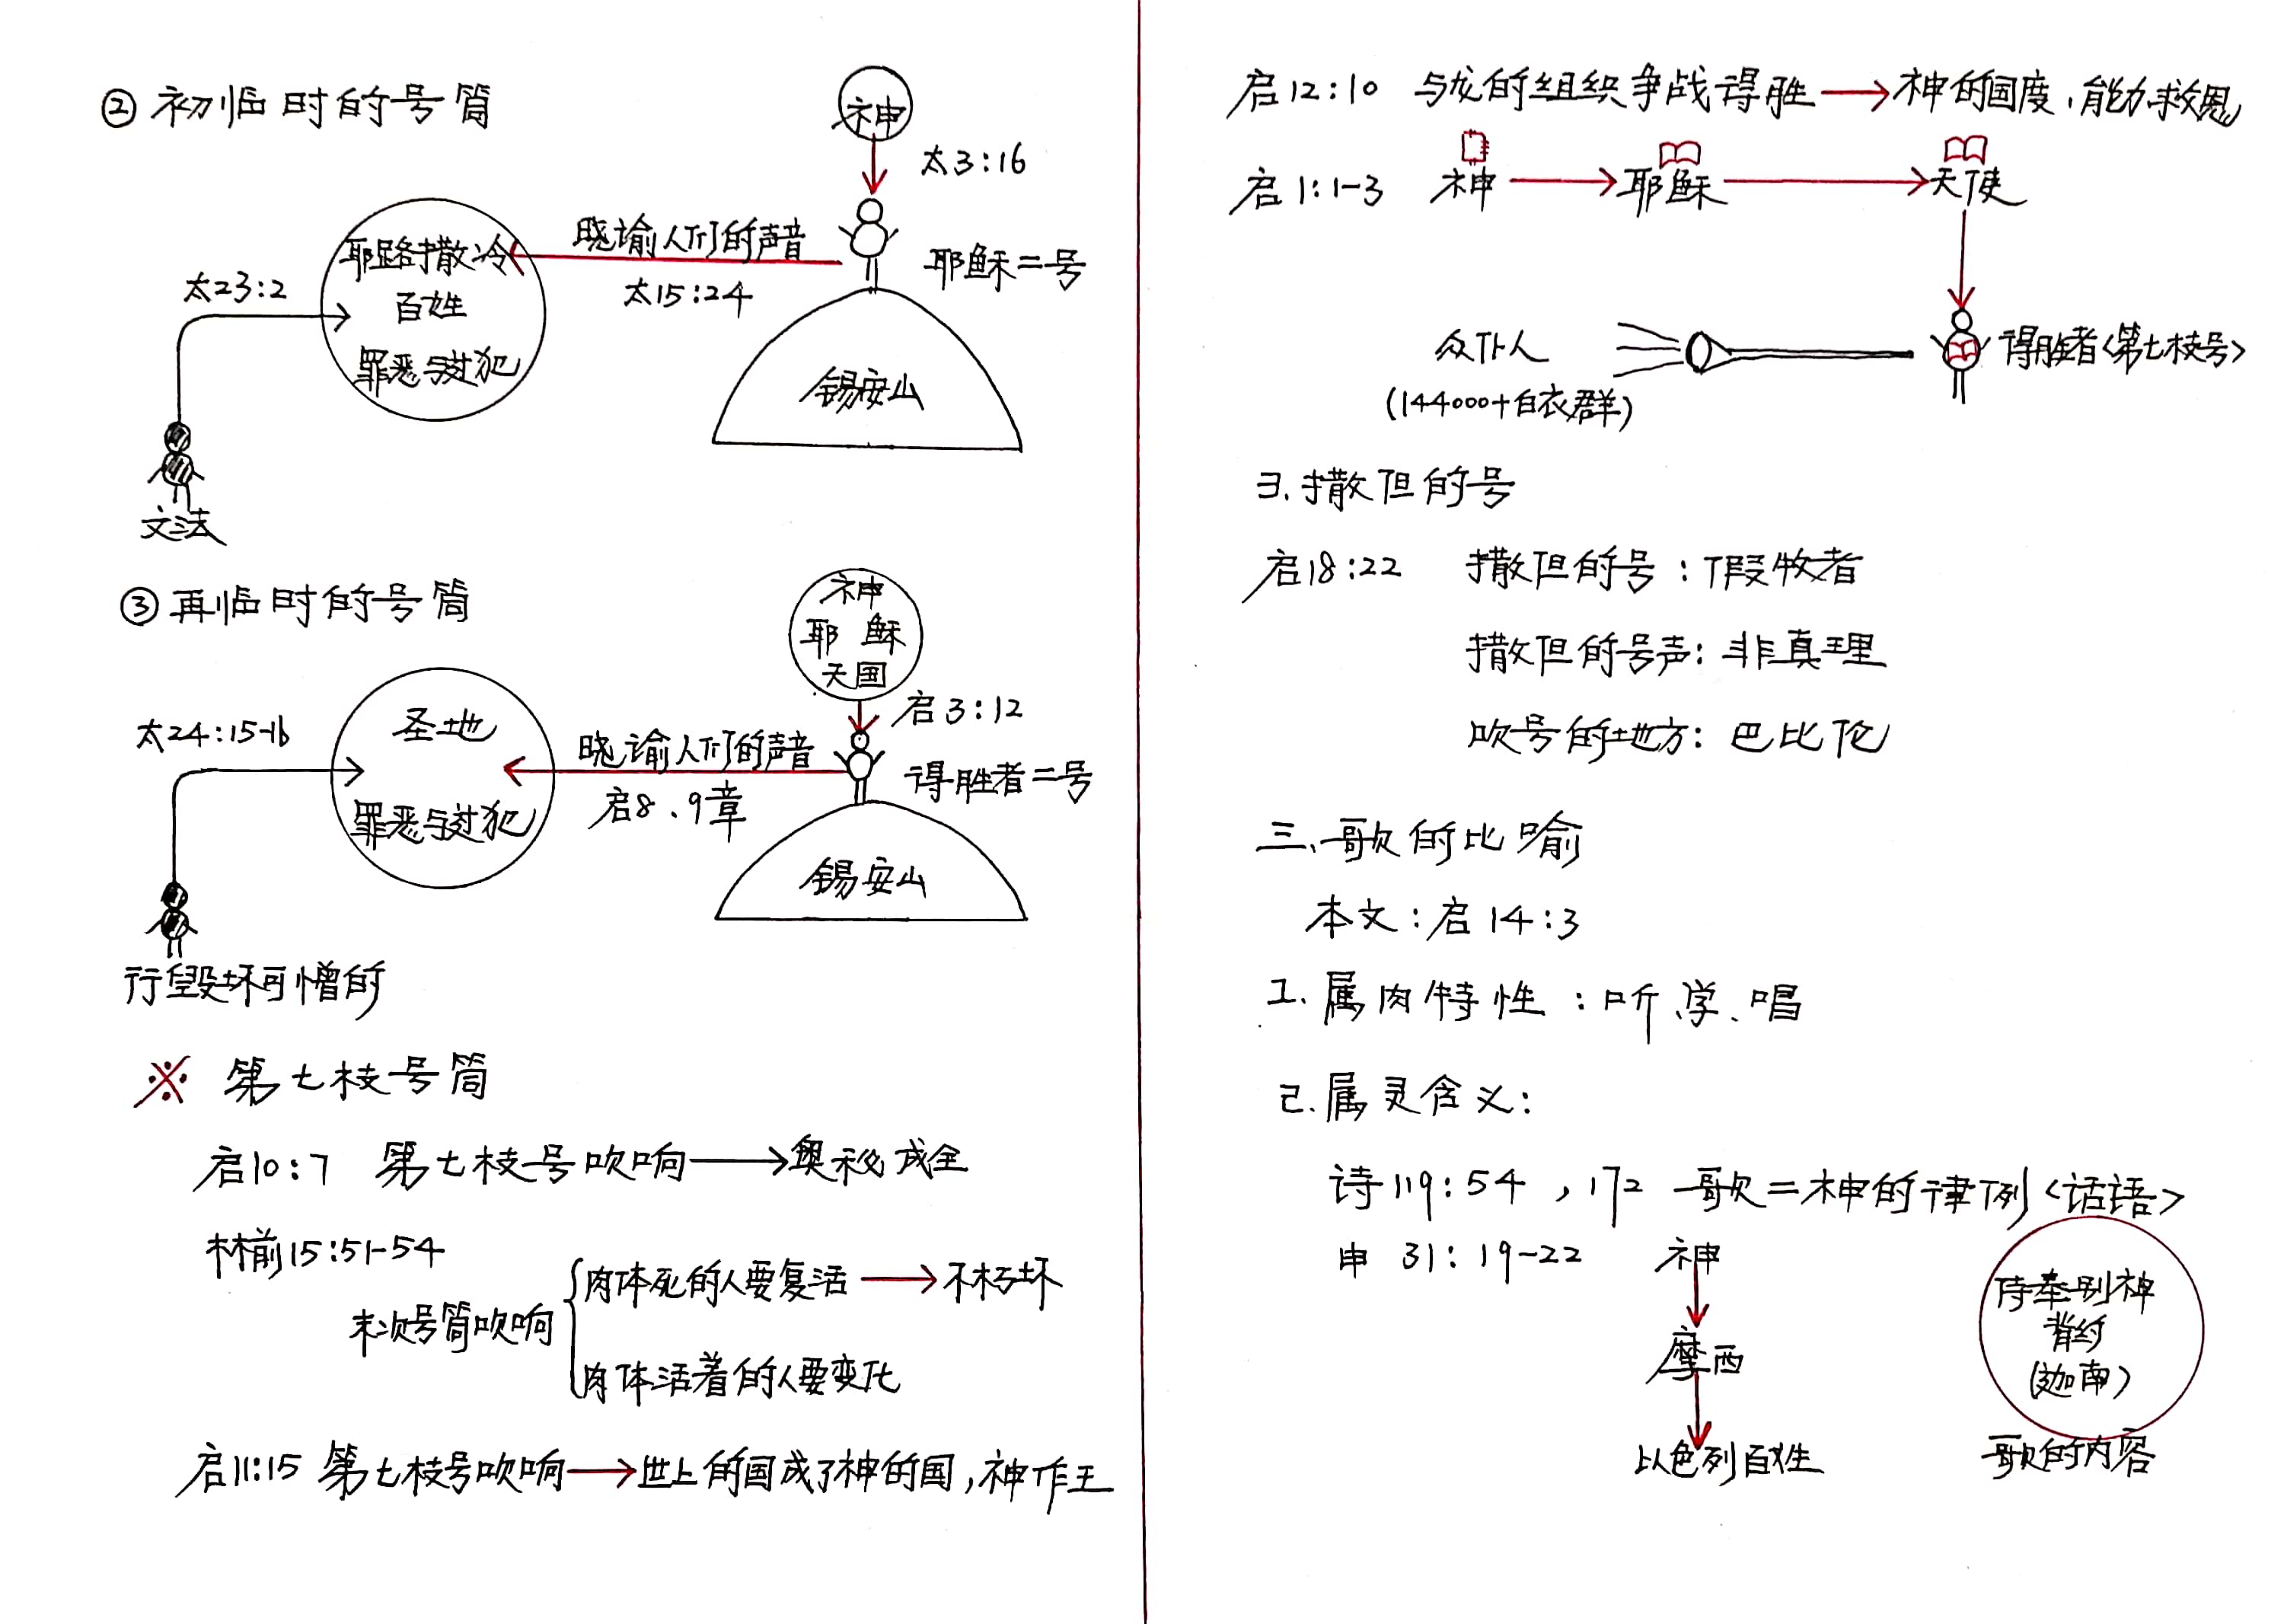 ② 初临时的号筒
神
太3:16
晓谕人们的声音
太15:24
耶稣=号
耶路撒冷
百姓
罪恶与过犯
太23:2
锡安山
文法
③ 再临时的号筒
神
耶稣
天国
启3:12
太24:15-16
圣地
罪恶与过犯
晓谕人们的声音
启8、9章
得胜者=号
锡安山
行毁坏可憎的
※ 第七枝号筒
启10:7 第七枝号吹响→奥秘成全
林前15:51-54
末次号筒吹响
肉体死的人要复活→不朽坏
肉体活着的人要变化
启11:15 第七枝号吹响→世上的国成了神的国,神作王
启12:10 与龙的组织争战得胜→神的国度,能力,救恩
启1:1-3 神→耶稣→天使
众仆人
(144000+白衣群)
得胜者<第七枝号>
3.撒但的号
启18:22 撒但的号:假牧者
撒但的号声:非真理
吹号的地方:巴比伦
三、歌的比喻
本文:启14:3
1.属肉特性:听、学、唱
2.属灵含义:
诗119:54,172 歌=神的律例<话语>
申 31:19-22 神
摩西
以色列百姓
侍奉别神
背约
(迦南)
歌的内容